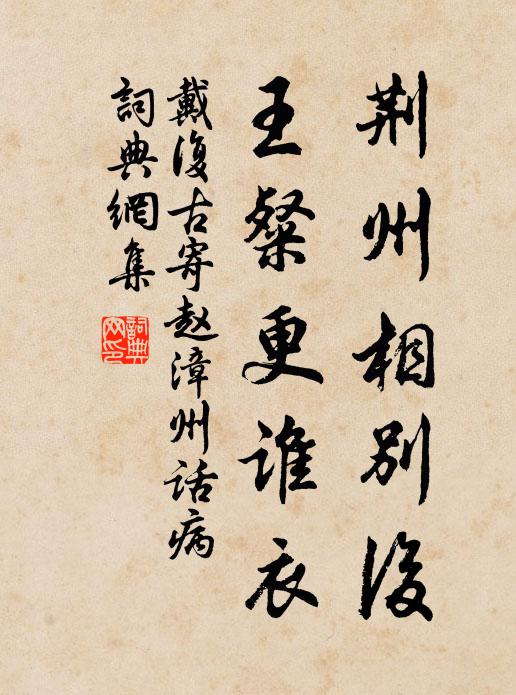 荆州相别後
王粲更谁衣
戴復古寄赵漳州话病
詞典網集
詞典
网印